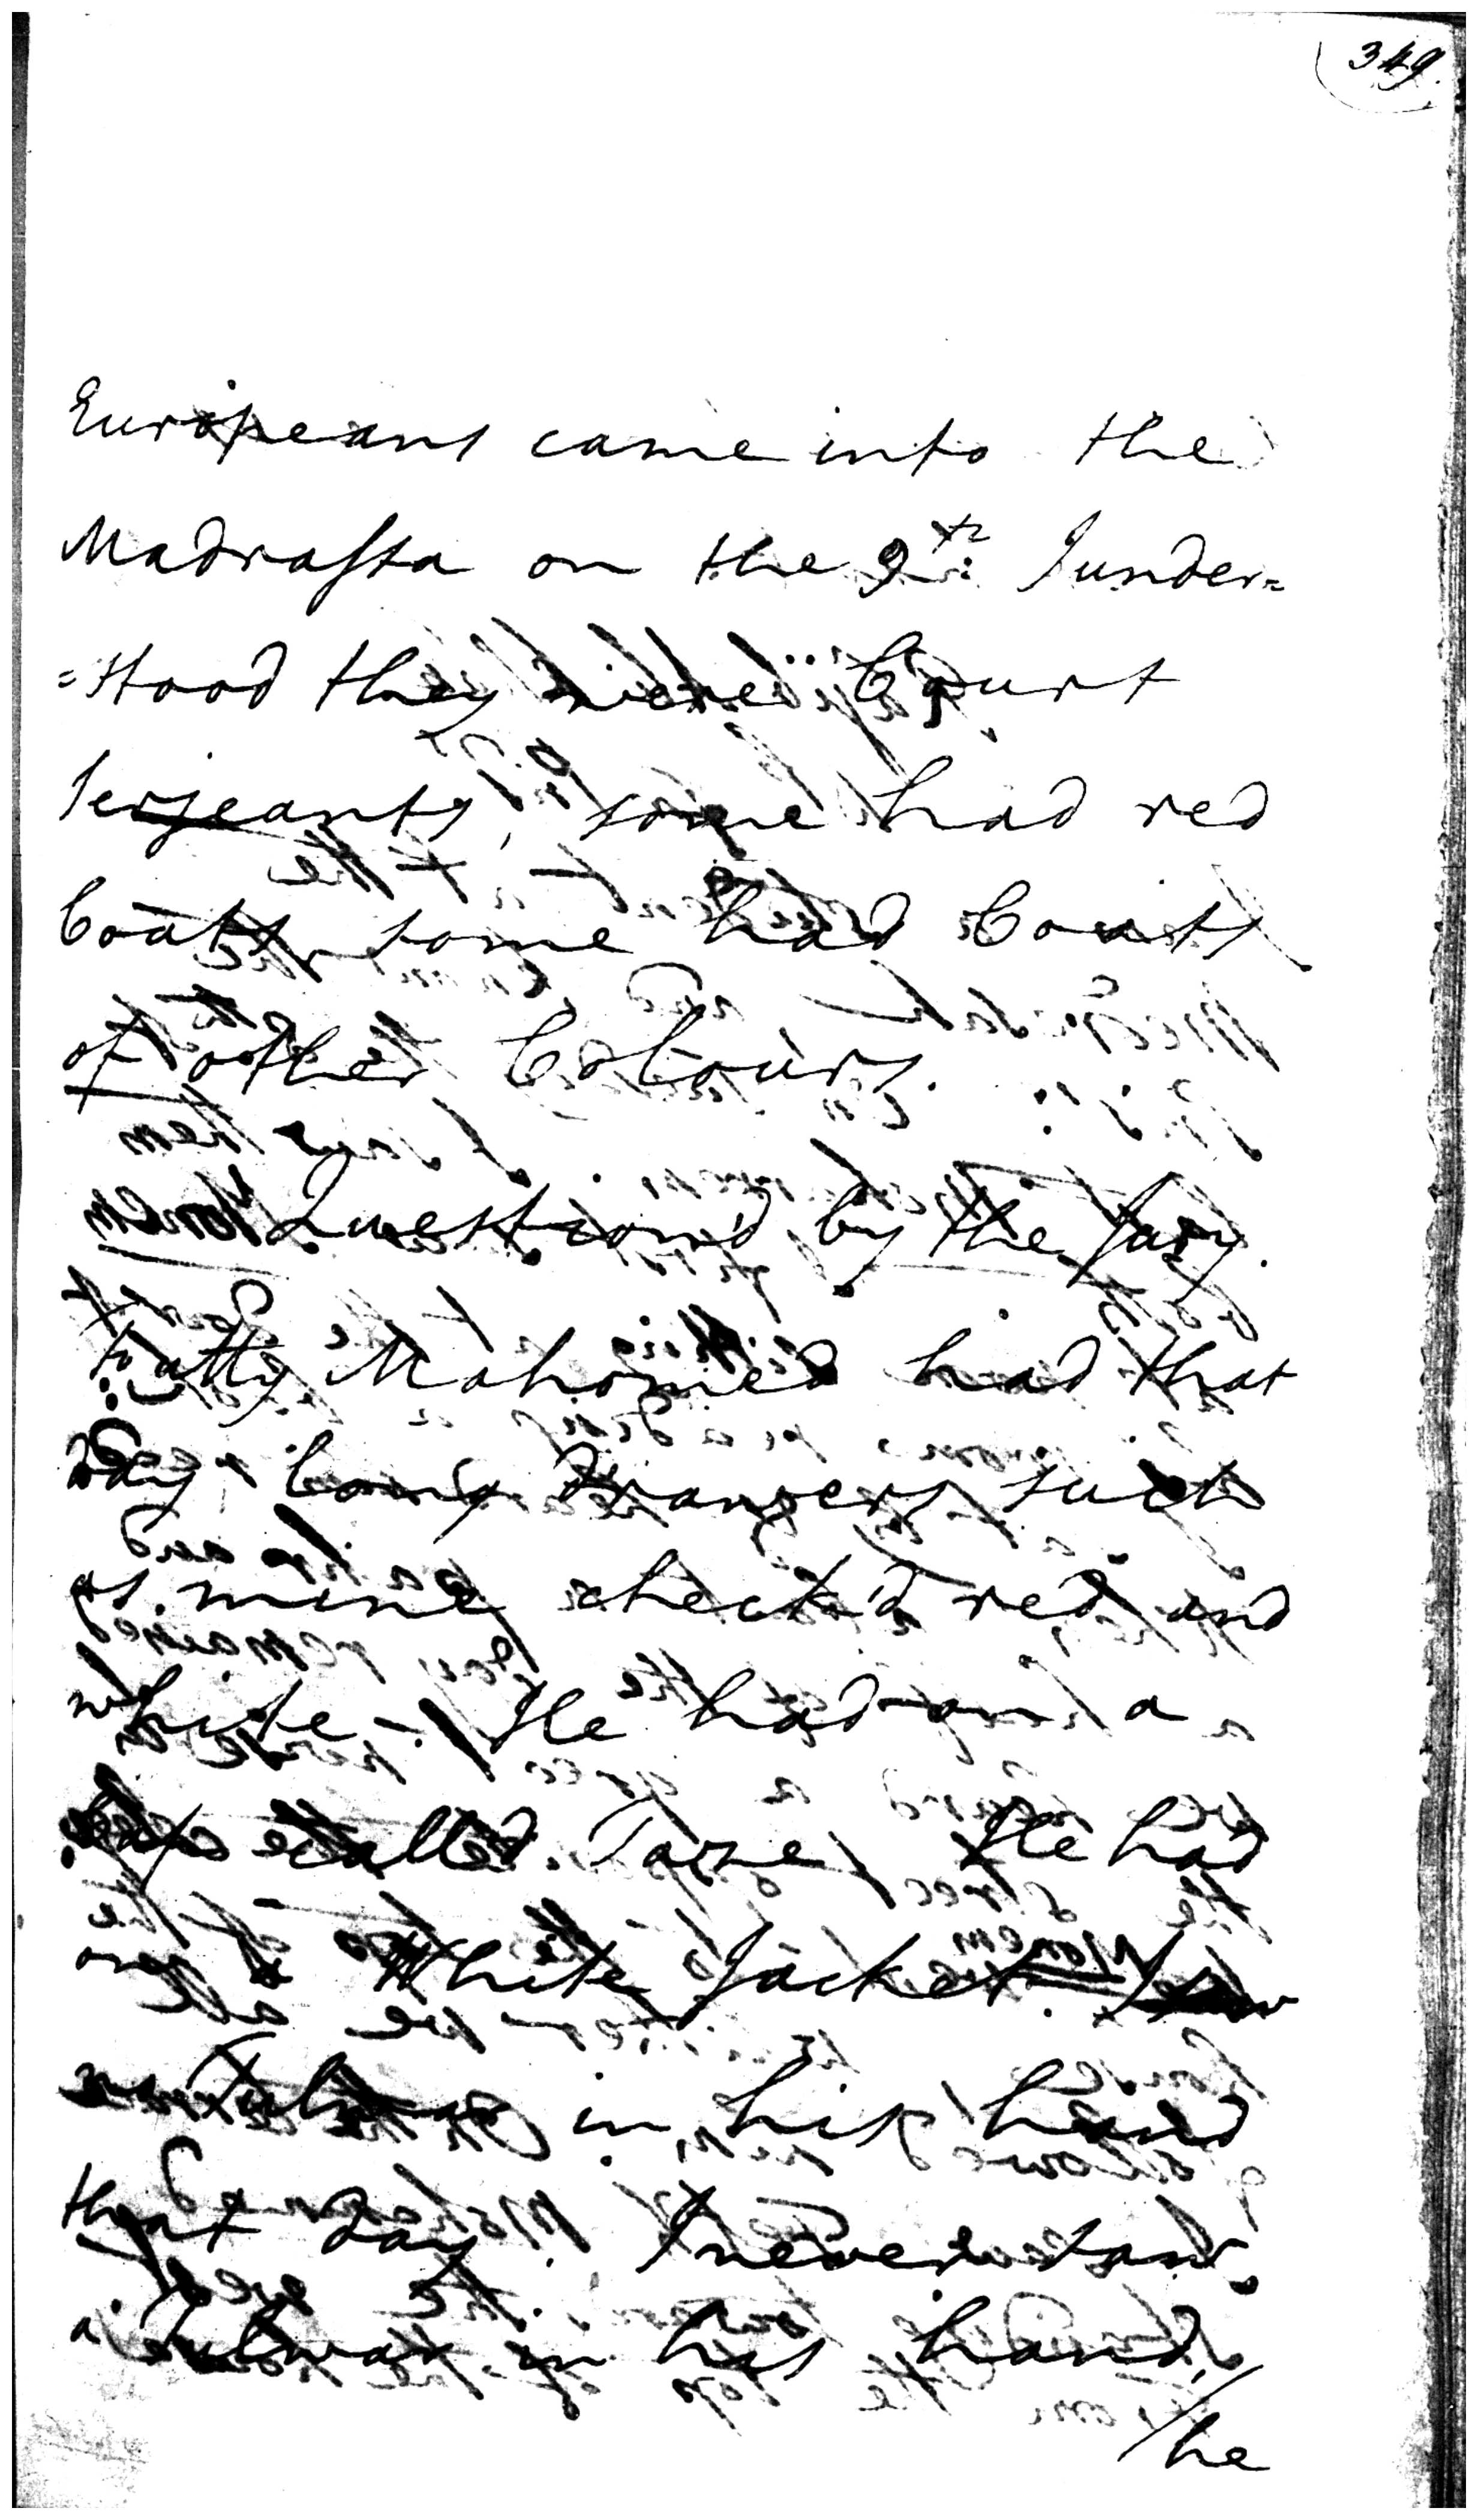 349.
Europeans came into the
Madrassa on the 9th. I under=
=stood they were Court
Serjeants, some had red
Coats, some had Coats
of other Colours.
Question'd by the Jury.
Fatty Mahomed had that
day long Drawers such
as mine check'd red and
white. He had on a
called Taze He had
on a White Jacket. I saw
no Tulwar in his hand
that day. I never saw
a Tulwar in his hand,
/he